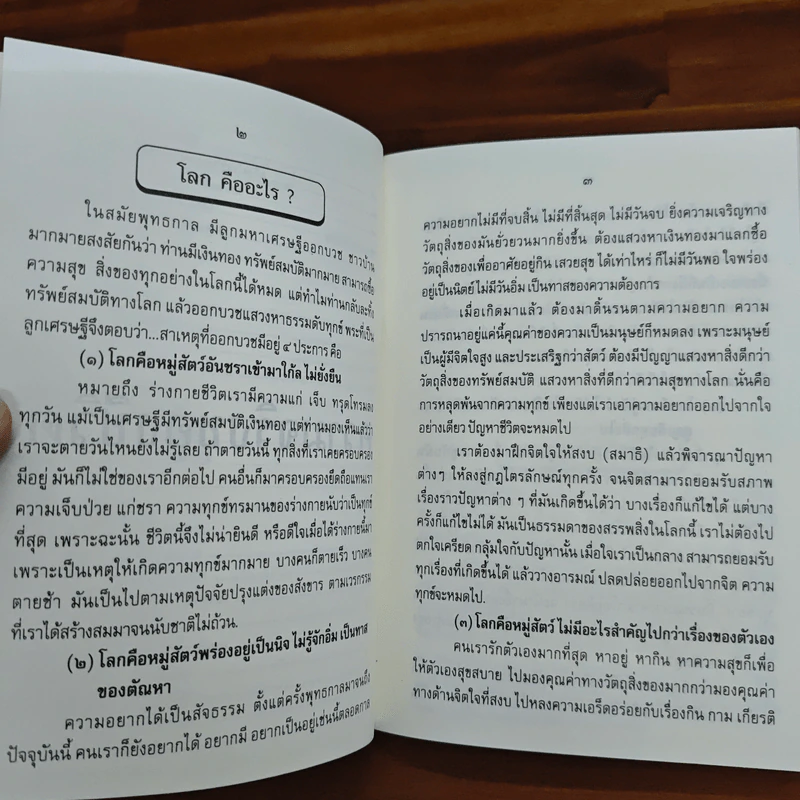 ๒
โลก คืออะไร ?
ในสมัยพุทธกาล มีลูกมหาเศรษฐีออกบวช ชาวบ้าน
มากมายสงสัยกันว่า ท่านมีเงินทอง ทรัพย์สมบัติมากมาย สามารถซื้อ
ความสุข สิ่งของทุกอย่างในโลกนี้ได้หมด แต่ทำไมท่านกลับละทิ้ง
ทรัพย์สมบัติทางโลก แล้วออกบวชแสวงหาธรรมดับทุกข์ พระที่เป็น
ลูกเศรษฐีจึงตอบว่า...สาเหตุที่ออกบวชมีอยู่ ๔ ประการ คือ
(๑) โลกคือหมู่สัตว์อันชราเข้ามาใกล้ ไม่ยั่งยืน
หมายถึง ร่างกายชีวิตเรามีความแก่ เจ็บ ทรุดโทรมลง
ทุกวัน แม้เป็นเศรษฐีมีทรัพย์สมบัติเงินทอง แต่ท่านมองเห็นแล้วว่า
เราจะตายวันไหนยังไม่รู้เลย ถ้าตายวันนี้ ทุกสิ่งที่เราเคยครอบครอง
มีอยู่ มันก็ไม่ใช่ของเราอีกต่อไป คนอื่นก็มาครอบครองยึดถือแทนเรา
ความเจ็บป่วย แก่ชรา ความทุกข์ทรมานของร่างกายนับว่าเป็นทุกข์
ที่สุด เพราะฉะนั้น ชีวิตนี้จึงไม่น่ายินดี หรือดีใจเมื่อได้ร่างกายนี้มา
เพราะเป็นเหตุให้เกิดความทุกข์มากมาย บางคนก็ตายเร็ว บางคน
ตายช้า มันเป็นไปตามเหตุปัจจัยปรุงแต่งของสังขาร ตามเวรกรรม
ที่เราได้สร้างสมมาจนนับชาติไม่ถ้วน.
(๒) โลกคือหมู่สัตว์พร่องอยู่เป็นนิจ ไม่รู้จักอิ่ม เป็นทาส
ของตัณหา
ความอยากได้เป็นสัจธรรม ตั้งแต่ครั้งพุทธกาลมาจนถึง
ปัจจุบันนี้ คนเราก็ยังอยากได้ อยากมี อยากเป็นอยู่เช่นนี้ตลอดกาล
๓
ความอยากไม่มีที่จบสิ้น ไม่มีที่สิ้นสุด ไม่มีวันจบ ยิ่งความเจริญทาง
วัตถุสิ่งของมันยั่วยวนมากยิ่งขึ้น ต้องแสวงหาเงินทองมาแลกซื้อ
วัตถุสิ่งของเพื่ออาศัยอยู่กิน เสวยสุข ได้เท่าไหร่ ก็ไม่มีวันพอ ใจพร่อง
อยู่เป็นนิตย์ ไม่มีวันอิ่ม เป็นทาสของความต้องการ
เมื่อเกิดมาแล้ว ต้องมาดิ้นรนตามความอยาก ความ
ปรารถนาอยู่แค่นี้คุณค่าของความเป็นมนุษย์ก็หมดลง เพราะมนุษย์
เป็นผู้มีจิตใจสูง และประเสริฐกว่าสัตว์ ต้องมีปัญญาแสวงหาสิ่งดีกว่า
วัตถุสิ่งของทรัพย์สมบัติ แสวงหาสิ่งที่ดีกว่าความสุขทางโลก นั่นคือ
การหลุดพ้นจากความทุกข์ เพียงแต่เราเอาความอยากออกไปจากใจ
อย่างเดียว ปัญหาชีวิตจะหมดไป
เราต้องมาฝึกจิตใจให้สงบ (สมาธิ) แล้วพิจารณาปัญหา
ต่างๆ ให้ลงสู่กฎไตรลักษณ์ทุกครั้ง จนจิตสามารถยอมรับสภาพ
เรื่องราวปัญหาต่าง ๆ ที่มันเกิดขึ้นได้ว่า บางเรื่องก็แก้ไขได้ แต่บาง
ครั้งก็แก้ไขไม่ได้ มันเป็นธรรมดาของสรรพสิ่งในโลกนี้ เราไม่ต้องไป
ตกใจเครียด กลุ้มใจกับปัญหานั้น เมื่อใจเราเป็นกลาง สามารถยอมรับ
ทุกเรื่องที่เกิดขึ้นได้ แล้ววางอารมณ์ ปลดปล่อยออกไปจากจิต ความ
ทุกข์จะหมดไป.
(๓) โลกคือหมู่สัตว์ ไม่มีอะไรสำคัญไปกว่าเรื่องของตัวเอง
คนเรารักตัวเองมากที่สุด หาอยู่ หากิน หาความสุขก็เพื่อ
ให้ตัวเองสุขสบาย ไปมองคุณค่าทางวัตถุสิ่งของมากกว่ามองคุณค่า
ทางด้านจิตใจที่สงบ ไปหลงความเอร็ดอร่อยกับเรื่องกิน กาม เกียรติ